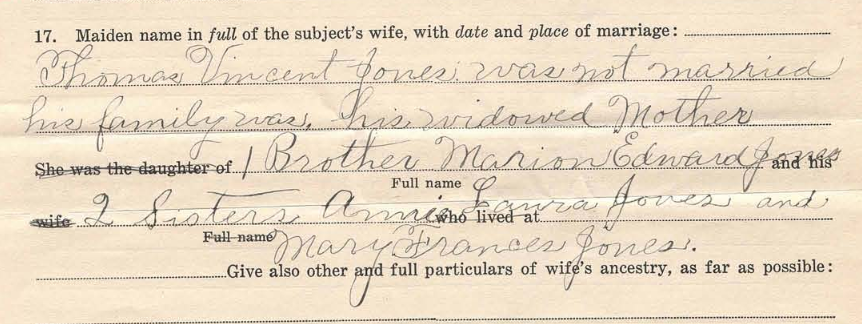 17. Maiden name in full of the subject's wife, with date and place of marriage:
Thomas Vincent Jones was not married
his family was, his widowed Mother
She was the daughter of 1 Brother Marion Edward Jones and his
Full name
wife 2 Sisters Annie Laura Jones and
who lived at
Full name Mary Frances Jones.
Give also other and full particulars of wife's ancestry, as far as possible: